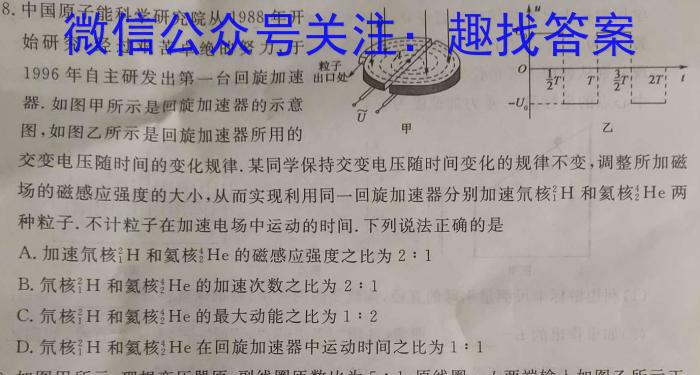 8.中国原子能科学研究院从1988年开
始研
努力,于
微信公众号关注:趣找答案
1996年自主研发出第一台回旋加速
器.如图甲所示是回旋加速器的示意
图,如图乙所示是回旋加速器所用的
粒子
出口处
Ũ
甲
u
O
-U₀
½T
T
3/2T
2T
t
乙
交变电压随时间的变化规律.某同学保持交变电压随时间变化的规律不变,调整所加磁
场的磁感应强度的大小,从而实现利用同一回旋加速器分别加速氘核²₁H 和氦核⁴₂He 两
种粒子.不计粒子在加速电场中运动的时间.下列说法正确的是
A.加速氘核²₁H 和氦核⁴₂He 的磁感应强度之比为 2∶1
B.氘核²₁H 和氦核⁴₂He 的加速次数之比为 2∶1
C.氘核²₁H 和氦核⁴₂He 的最大动能之比为 1∶2
D.氘核²₁H 和氦核⁴₂He 在回旋加速器中运动时间之比为 1∶1